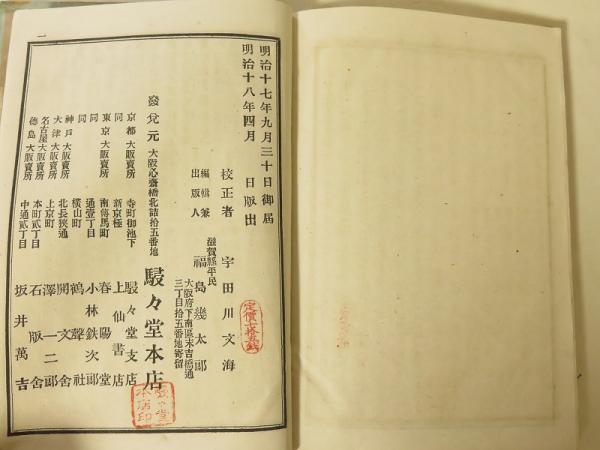 明治十七年九月三十日御届
明治十八年四月　日版出
校正者　宇田川文海
滋賀縣平民
編輯兼
出版人　福島幾太郎
大阪府下南區末吉橋通
三丁目十五番地寄留
定價
發兌元　大阪心齋橋北詰拾五番地　駸々堂本店
駸々堂
本店印
京都大阪賣所　寺町御池下　駸々堂支店
同　新京極　上仙書店
東京大阪賣所　南傳馬町　春陽堂
同　通壹丁目　小林鉄次郎
同　横山町　鶴聲社
神戸大阪賣所　北長狭通　開文舎
大津大阪賣所　上京町　澤二郎
名古屋大阪賣所　本町貳丁目　石版舎
徳島大阪賣所　中通貳丁目　坂井萬吉
一